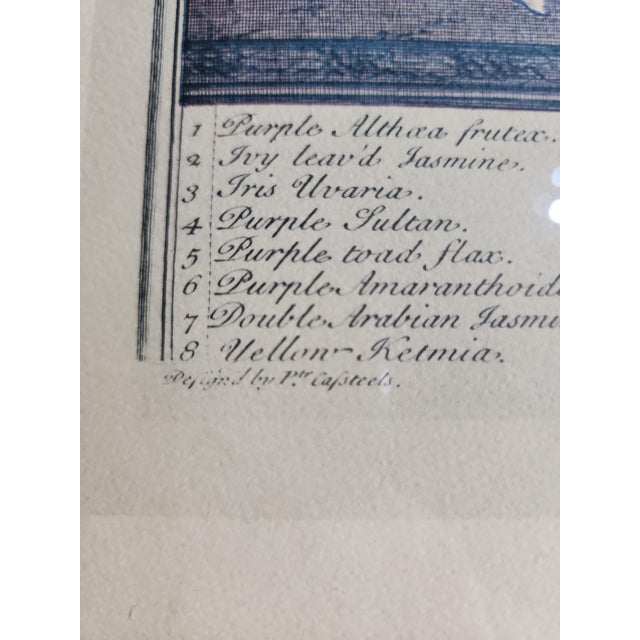 1 Purple Althæa frutex.
2 Ivy leav'd Jasmine.
3 Iris Uvaria.
4 Purple Sultan.
5 Purple toad flax.
6 Purple Amaranthoid
7 Double Arabian Jasmi
8 Yellow Ketmia.
Design'd by Ptr. Caſteels.